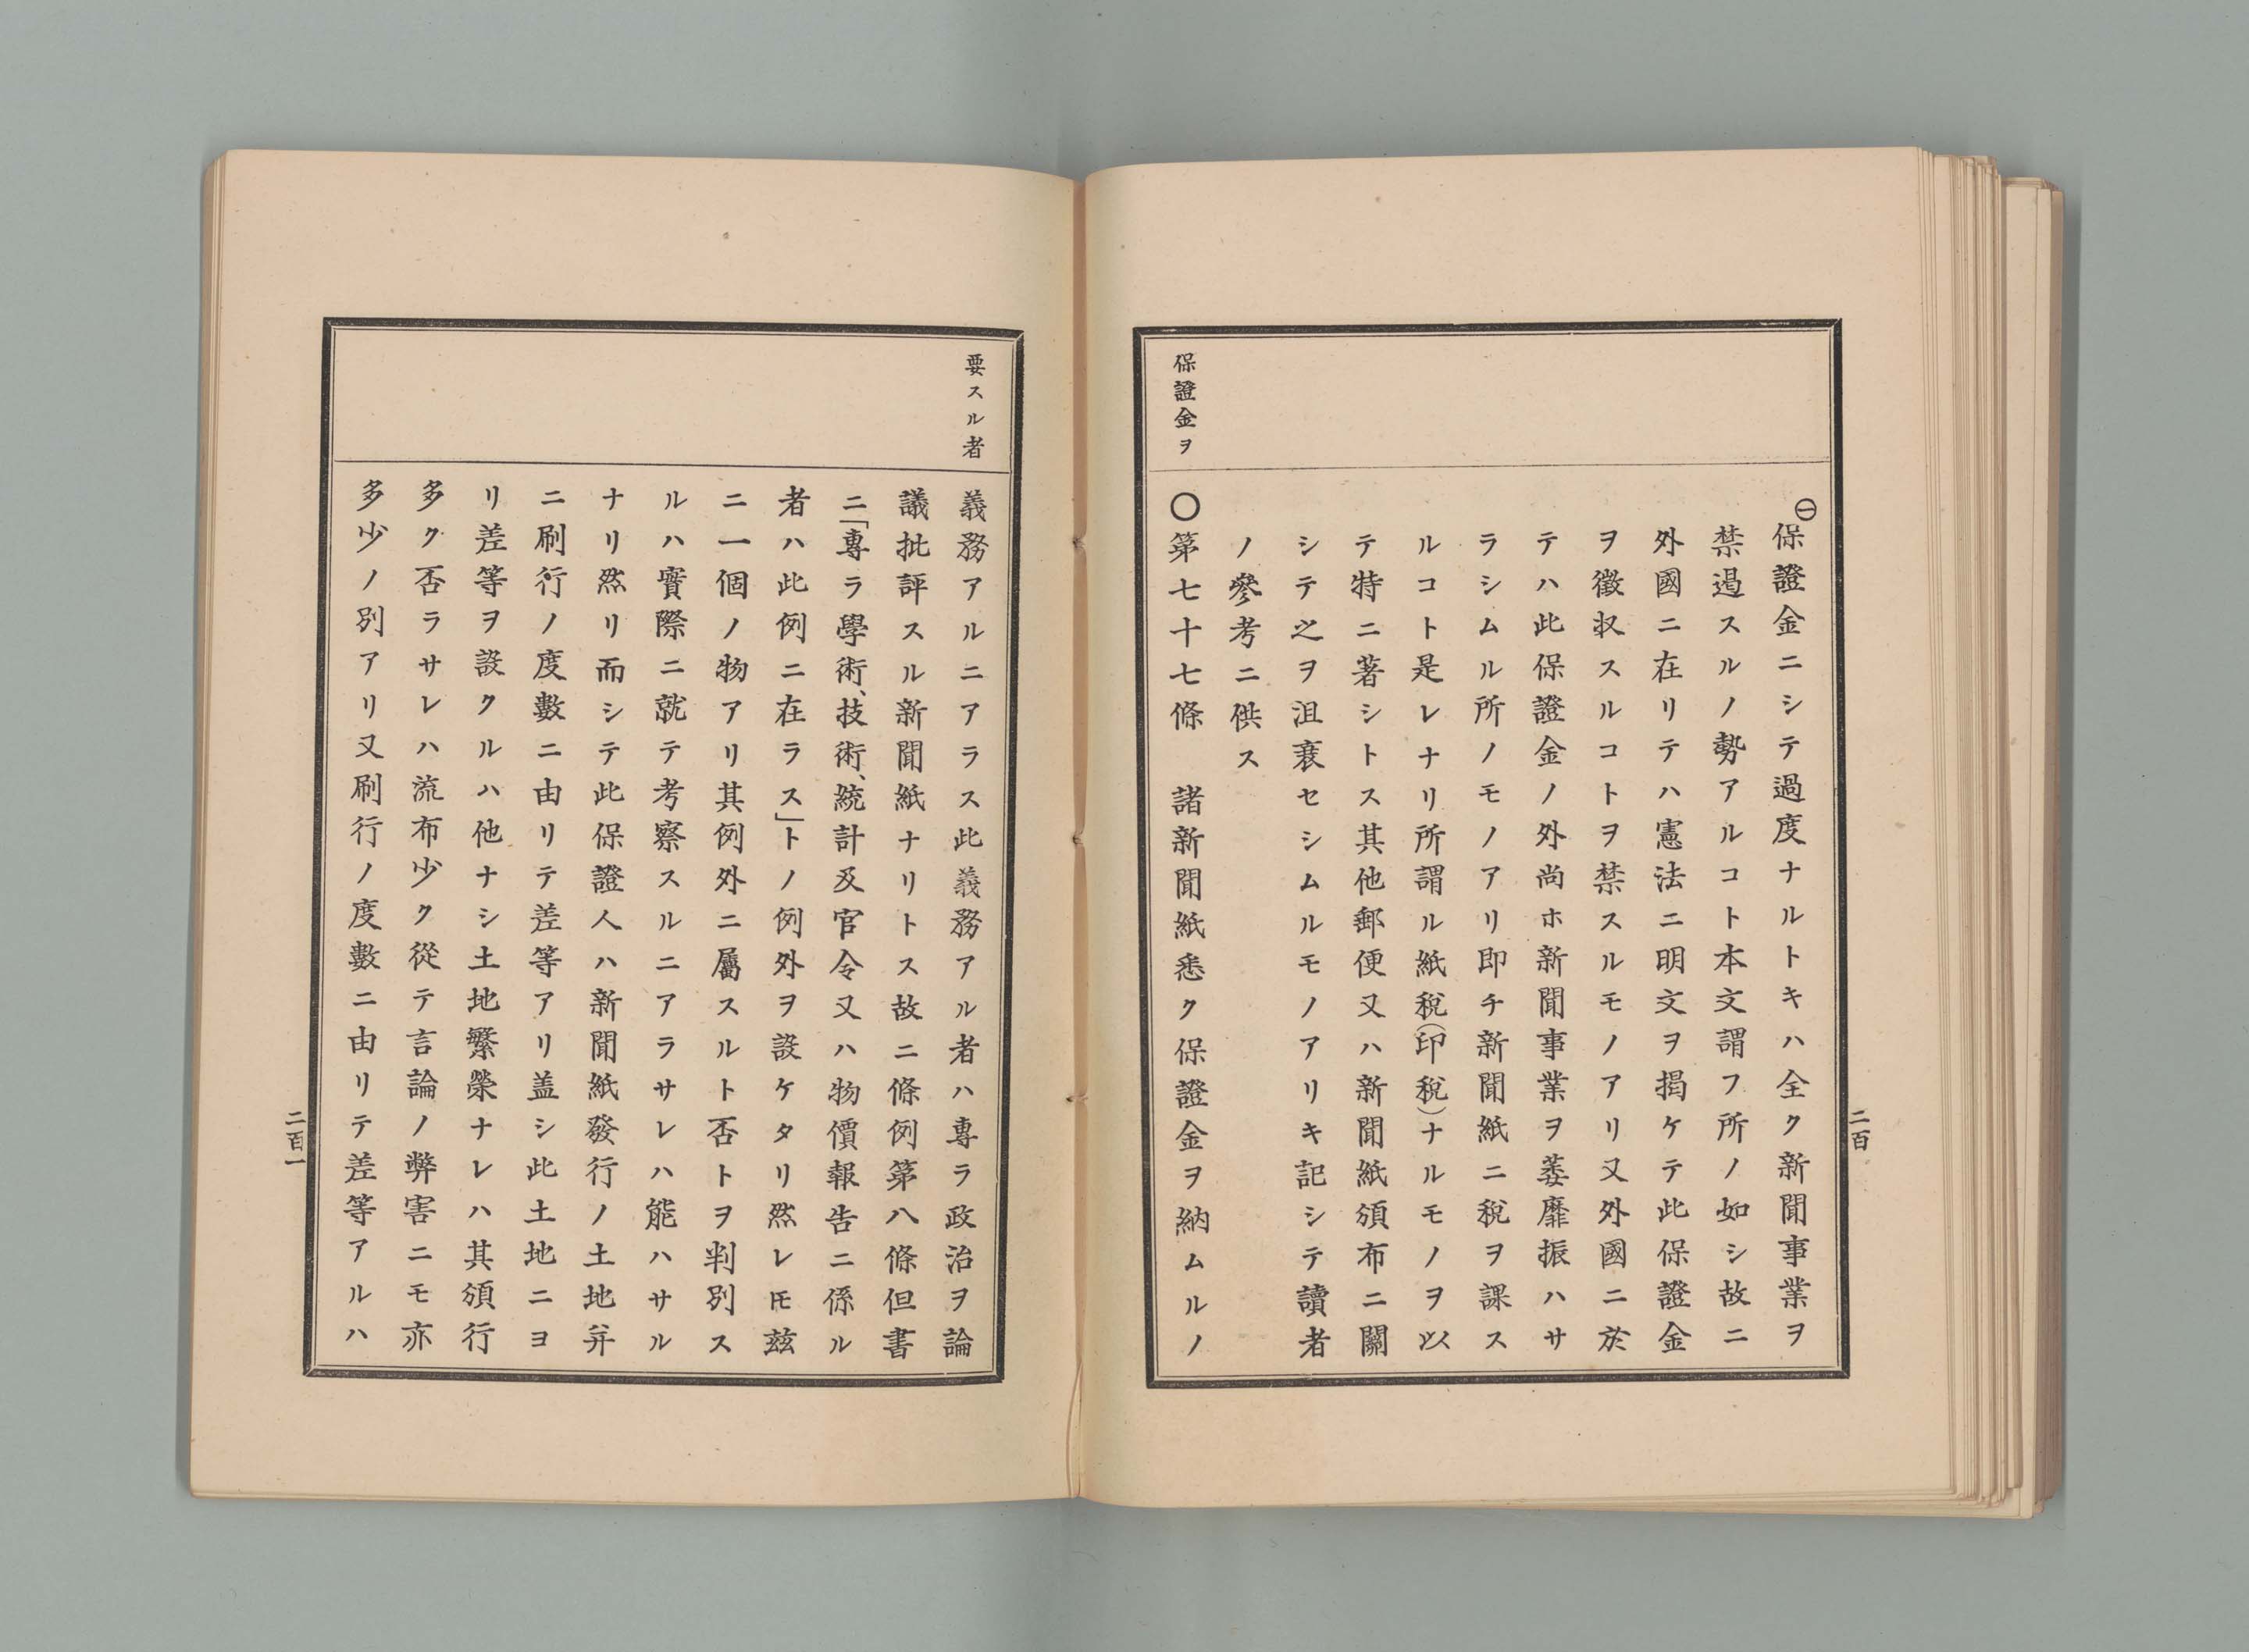 ㊀保證金ニシテ過度ナルトキハ全ク新聞事業ヲ
禁遏スルノ勢アルコト本文謂フ所ノ如シ故ニ
外國ニ在リテハ憲法ニ明文ヲ揭ケテ此保證金
ヲ徵収スルコトヲ禁スルモノアリ又外國ニ於
テハ此保證金ノ外尚ホ新聞事業ヲ萎靡振ハサ
ラシムル所ノモノアリ即チ新聞紙ニ稅ヲ課ス
ルコト是レナリ所謂ル紙稅(印稅)ナルモノヲ以
テ特ニ著シトス其他郵便又ハ新聞紙頒布ニ關
シテ之ヲ沮衰セシムルモノアリキ記シテ讀者
ノ參考ニ供ス
保證金ヲ
〇第七十七條　諸新聞紙悉ク保證金ヲ納ムルノ
二百
要スル者
義務アルニアラス此義務アル者ハ專ラ政治ヲ論
議批評スル新聞紙ナリトス故ニ條例第八條但書
ニ「專ラ學術、技術、統計及官令又ハ物價報告ニ係ル
者ハ此例ニ在ラス」トノ例外ヲ設ケタリ然レ𪜈茲
ニ一個ノ物アリ其例外ニ屬スルト否トヲ判別ス
ルハ實際ニ就テ考察スルニアラサレハ能ハサル
ナリ然リ而シテ此保證人ハ新聞紙發行ノ土地幷
ニ刷行ノ度數ニ由リテ差等アリ盖シ此土地ニヨ
リ差等ヲ設クルハ他ナシ土地繁榮ナレハ其頒行
多ク否ラサレハ流布少ク從テ言論ノ弊害ニモ亦
多少ノ別アリ又刷行ノ度數ニ由リテ差等アルハ
二百一